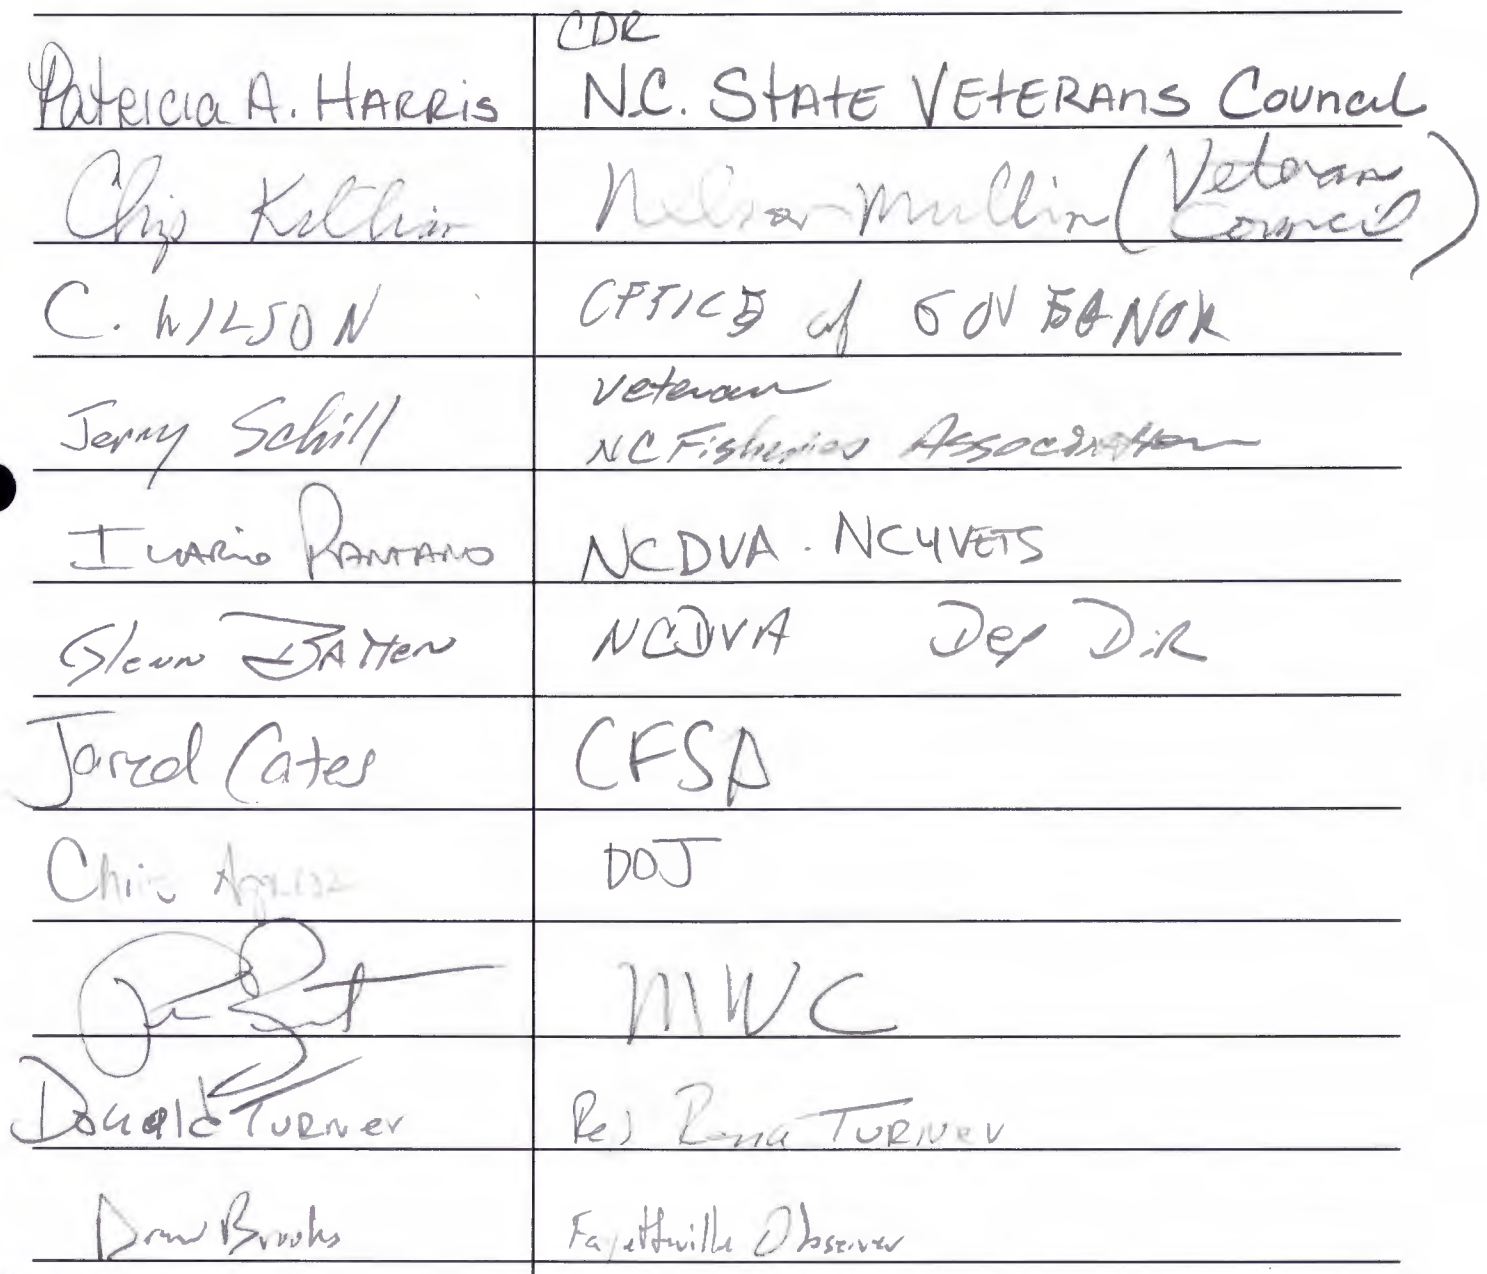 CDR
Patricia A. HARRIS N.C. STATE VETERANS Council
Chip Nelson Mullin (Veteran
Council)
C. WILSON OFFICE of GOVERNOR
Veteran
Jerry Schill NC Fisheries Association
ILARIO PANTANO NCDVA. NC4VETS
Glenn BATTEN NCDVA Dep DiR
Jared Cates CFSA
Chris DOJ
MWC
Donald TURNER Rep Rena TURNER
Drew Brooks Fayetteville Observer